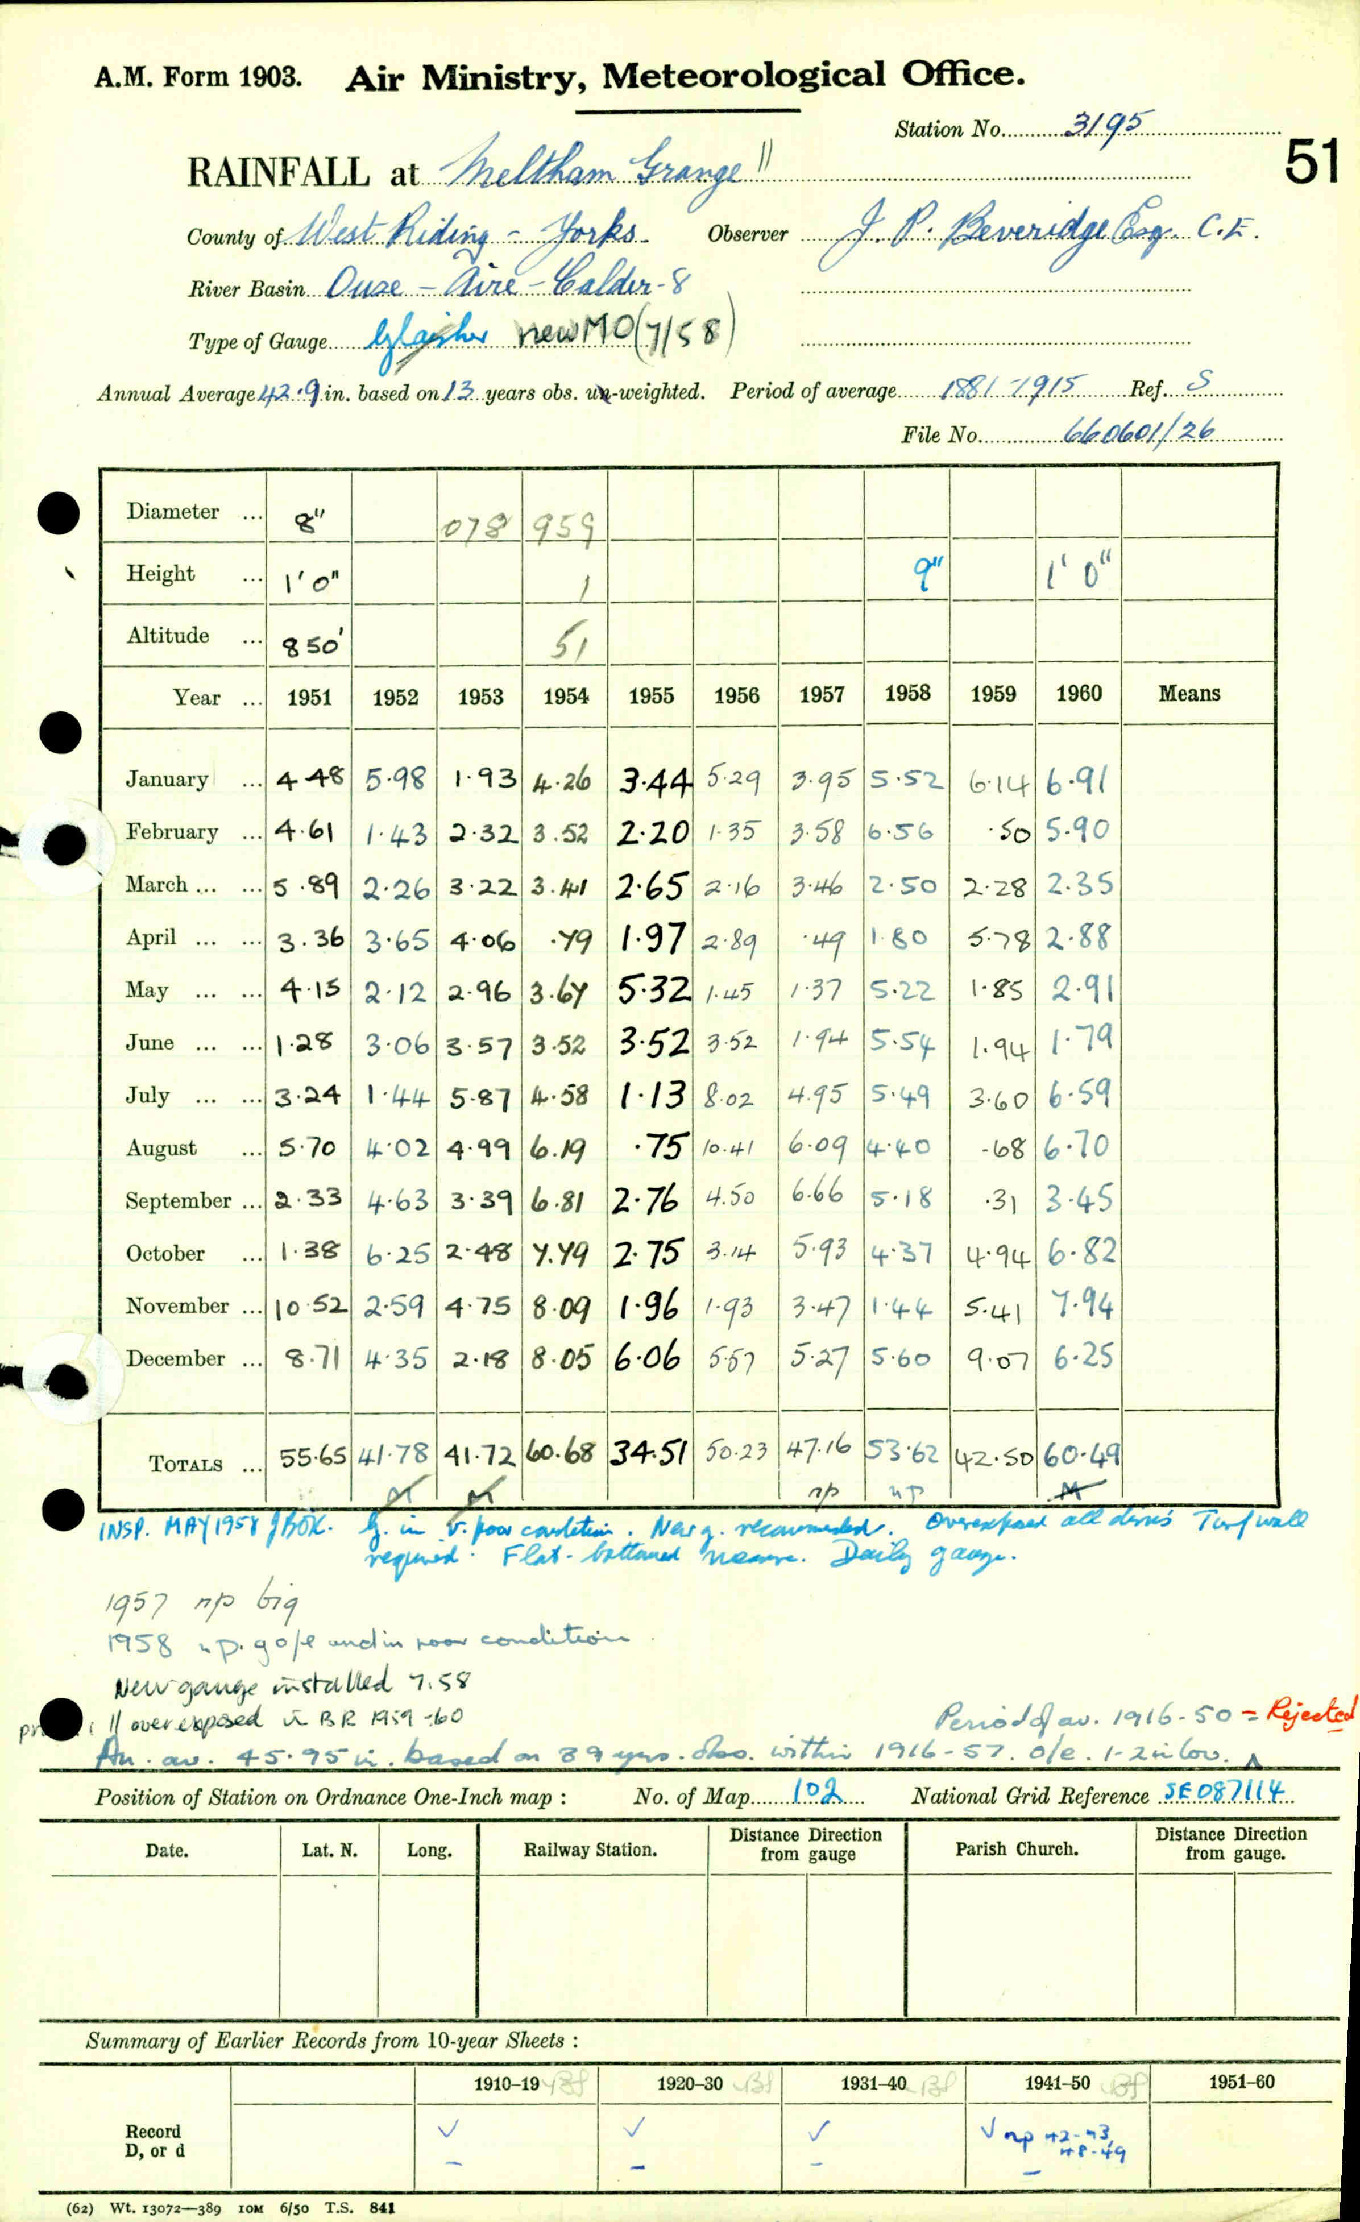 A.M. Form 1903. Air Ministry, Meteorological Office.
Station No. 3195
51
RAINFALL at Meltham Grange ||
County of West Riding - Yorks. Observer J. P. Beveridge Esq. C.E.
River Basin Ouse - Aire - Calder - 8
Type of Gauge Glaisher new MO (7/58)
Annual Average 42.9 in. based on 13 years obs. un-weighted. Period of average 1881-1915 Ref. S
File No. 660601/26
Diameter ... 8" 078 959
Height ... 1' 0" 1 9" 1' 0"
Altitude ... 850' 51
Year ... 1951 1952 1953 1954 1955 1956 1957 1958 1959 1960 Means
January ... 4.48 5.98 1.93 4.26 3.44 5.29 3.95 5.52 6.14 6.91
February ... 4.61 1.43 2.32 3.52 2.20 1.35 3.58 6.56 .50 5.90
March ... ... 5.89 2.26 3.22 3.41 2.65 2.16 3.46 2.50 2.28 2.35
April ... ... 3.36 3.65 4.06 .79 1.97 2.89 .49 1.80 5.78 2.88
May ... ... 4.15 2.12 2.96 3.67 5.32 1.45 1.37 5.22 1.85 2.91
June ... ... 1.28 3.06 3.57 3.52 3.52 3.52 1.94 5.54 1.94 1.79
July ... ... 3.24 1.44 5.87 4.58 1.13 8.02 4.95 5.49 3.60 6.59
August ... 5.70 4.02 4.99 6.19 .75 10.41 6.09 4.40 .68 6.70
September ... 2.33 4.63 3.39 6.81 2.76 4.50 6.66 5.18 .31 3.45
October ... 1.38 6.25 2.48 7.79 2.75 3.14 5.93 4.37 4.94 6.82
November ... 10.52 2.59 4.75 8.09 1.96 1.93 3.47 1.44 5.41 7.94
December ... 8.71 4.35 2.18 8.05 6.06 5.57 5.27 5.60 9.07 6.25
TOTALS ... 55.65 41.78 41.72 60.68 34.51 50.23 47.16 53.62 42.50 60.49
M M np np M
INSP. MAY 1958 G. in v. poor condition. New g. recommended. Overexposed all dirns Turf wall
required. Flat-bottomed measure. Daily gauge.
1957 np big
1958 n.p. g o/e and in poor condition
New gauge installed 7.58
|| overexposed in BR 1959-60
Period of av. 1916-50 = Rejected
An. av. 45.95 in. based on 39 yrs. obs. within 1916-57. o/e. 1-2 in low.
Position of Station on Ordnance One-Inch map : No. of Map 102 National Grid Reference SE 087114
Date. Lat. N. Long. Railway Station. Distance from Direction gauge Parish Church. Distance from Direction gauge.
Summary of Earlier Records from 10-year Sheets :
1910-19 1920-30 1931-40 1941-50 1951-60
Record
D, or d
✓ ✓ ✓ ✓ np 42-43
48-49
– – – –
(62) Wt. 13072—389 10M 6/50 T.S. 841